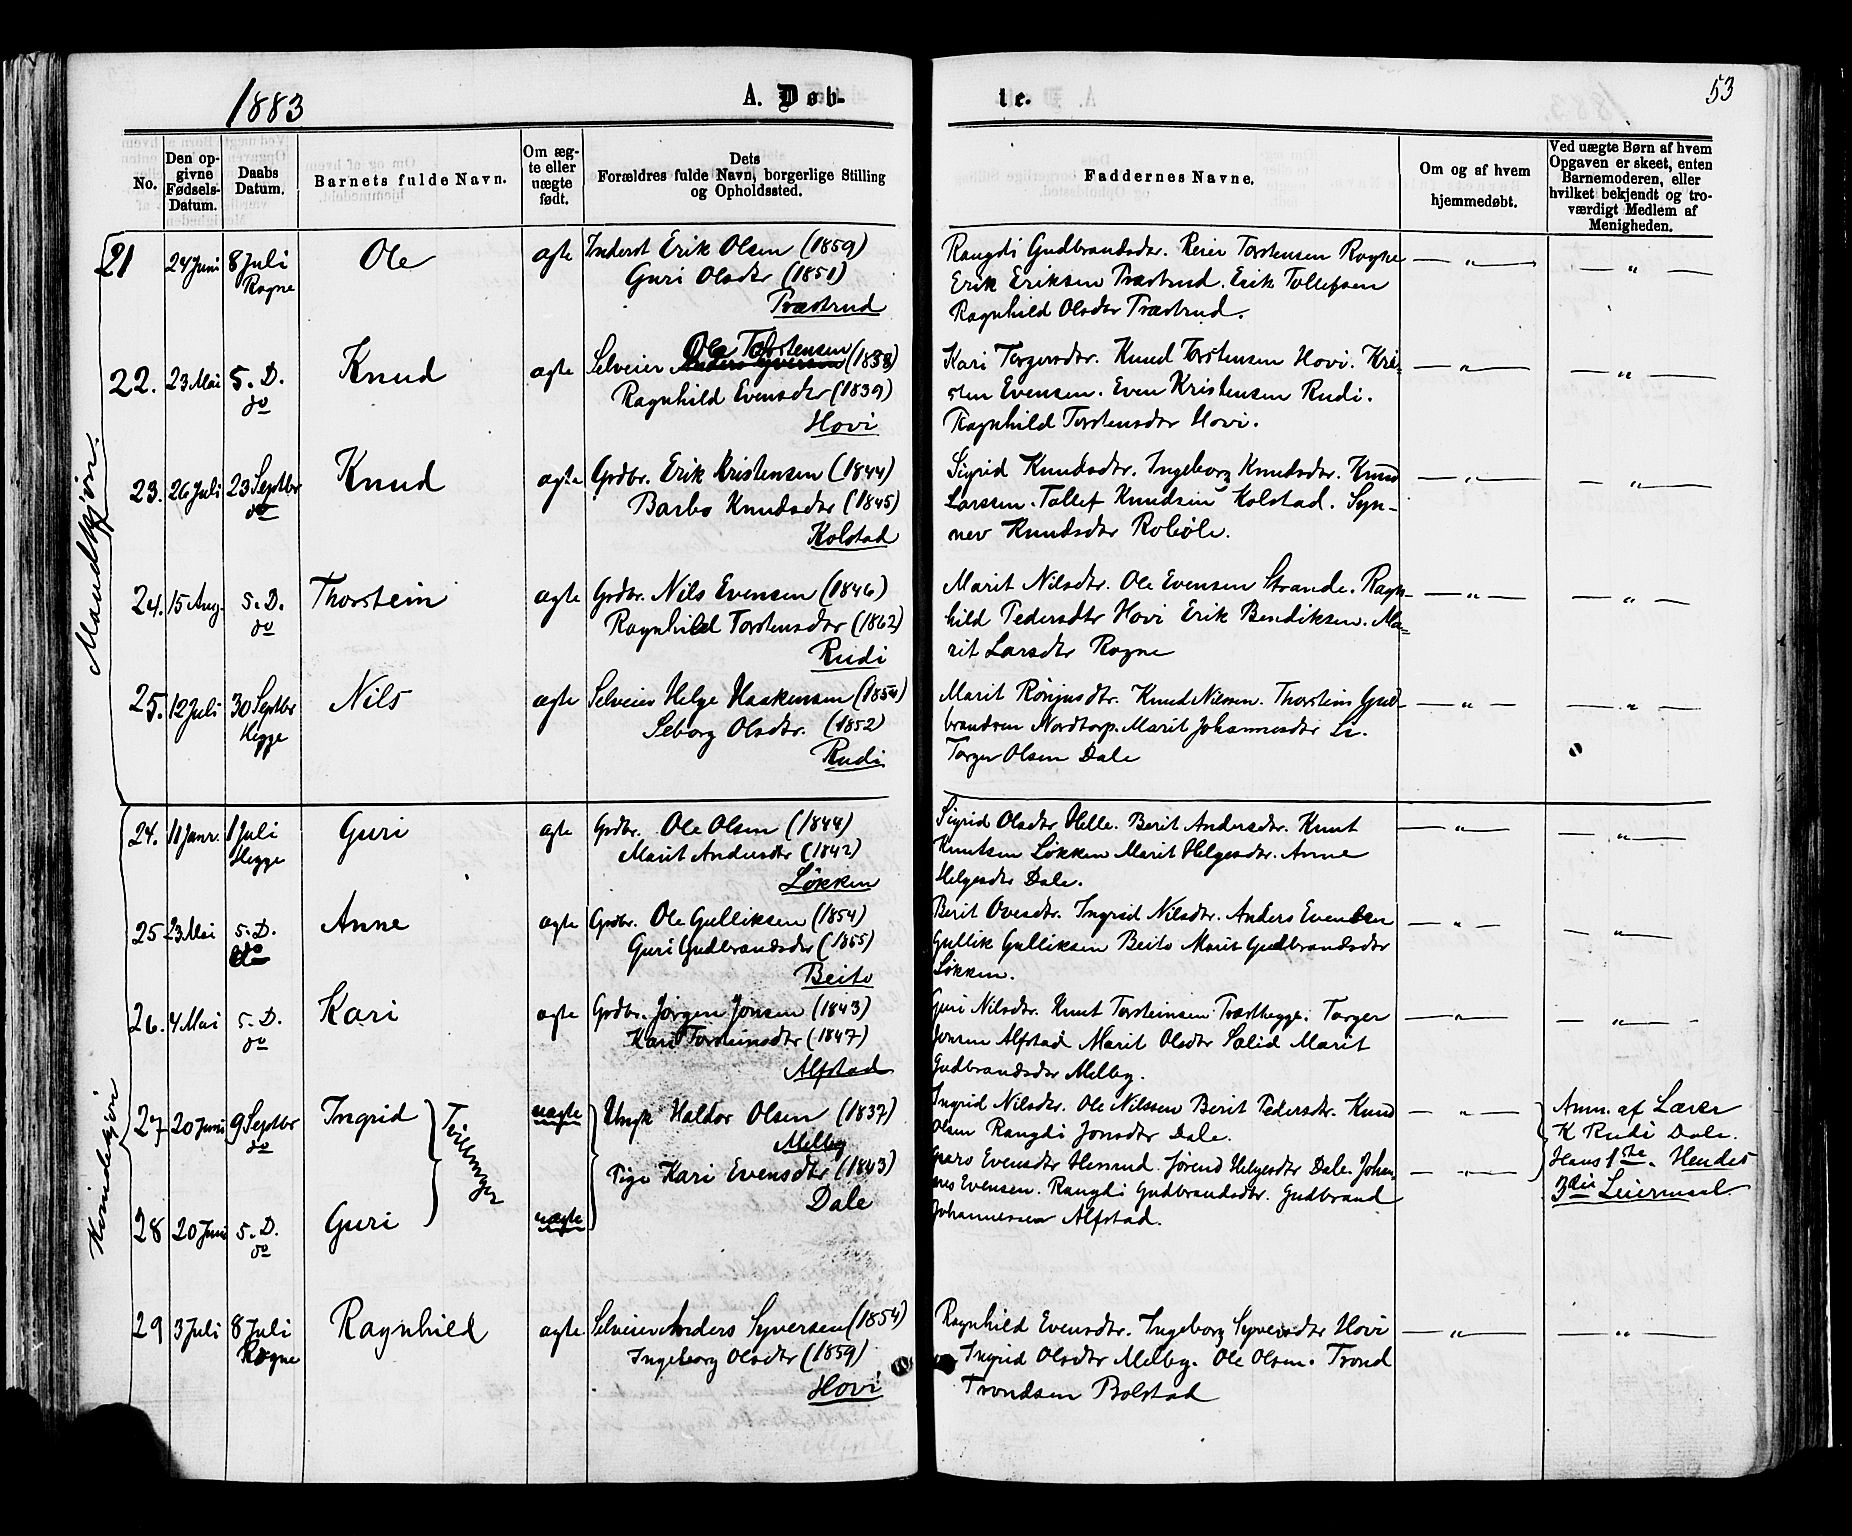 1883
A. Døb-
te.
53
No.
Den op-
givne
Fødsels-
Datum.
Daabs
Datum.
Barnets fulde Navn.
Om æg-
te eller
uægte
født.
Dets
Forældres fulde Navn, borgerlige Stilling
og Opholdssted.
Faddernes Navne.
Om og af hvem
hjemmedøbt.
Ved uægte Børn af hvem
Opgaven er skeet, enten
Barnemoderen, eller
hvilket bekjendt og tro-
værdigt Medlem af
Menigheden.
Mandkjøn.
21 24 Juni 8 Juli Ole ægte Inderst Erik Olsen (1859)
Rogne Guri Olsdtr (1851)
Træstrud
Rangdi Gudbrandsdtr. Reier Torstensen Rogne
Erik Eriksen Træstrud. Erik Tollefsen
Ragnhild Olsdtr Træstrud.
— " —
— " —
22. 23 Mai S. D. Knud ægte Selveier Ole Torstensen (1838)
do Ragnhild Evensdtr (1839)
Hovi
Kari Torgersdtr. Knud Torstensen Hovi. Kri-
sten Evensen. Even Kristensen Rudi.
Ragnhild Torstensdtr Hovi.
— " —
— " —
23. 26 Juli 23 Septbr Knud ægte Grdbr. Erik Kristensen (1844)
do Barbo Knudsdtr (1845)
Kolstad
Sigrid Knudsdtr. Ingeborg Knudsdtr. Knud
Larssen. Tollef Knudsen Kolstad. Syn-
nev Knudsdtr Robøle.
— " —
— " —
24. 15 Aug. S. D. Thorstein ægte Grdbr. Nils Evensen (1846)
do Ragnhild Torstensdtr (1862)
Rudi
Marit Nilsdtr. Ole Evensen Strande. Ragn-
hild Pedersdtr Hovi Erik Bendiksen. Ma-
rit Larsdtr Rogne
— " —
— " —
25. 12 Juli 30 Septbr Nils ægte Selveier Helge Haakensen (1854)
Hegge Seborg Olsdtr. (1852)
Rudi
Marit Rønjusdtr. Knud Nilssen. Thorstein Gud-
brandsen Nordtorp. Marit Johannesdtr Li.
Torger Olsen Dale
— " —
— " —
Kvindekjøn
24. 11 Janr. 1 Juli Guri ægte Grdbr. Ole Olsen (1844)
Hegge Marit Andersdtr (1842)
Løkken
Sigrid Olsdtr Helle. Berit Andersdtr. Knut
Knutsen Løkken Marit Helgesdtr. Anne
Helgesdtr Dale.
— " —
— " —
25 23 Mai S. D. Anne ægte Grdbr. Ole Gulliksen (1854)
do Guri Gudbrandsdtr (1855)
Beito
Berit Ovesdtr. Ingrid Nilsdtr. Anders Evensen
Gullik Gulliksen Beito Marit Gudbrandsdtr
Løkken.
— " —
— " —
26. 4 Mai S. D. Kari ægte Grdbr. Jørgen Jonsen (1843)
do Kari Torsteinsdtr (1847)
Alfstad
Guri Nilsdtr. Knut Torsteinsen Træsthegge. Torger
Jonsen Alfstad Marit Olsdtr Sælid Marit
Gudbrandsdtr Melby.
— " —
— " —
27 20 Juni 9 Septbr Ingrid Tvillinger uægte Ungk Haldor Olsen (1837)
do Melby
Pige Kari Evensdtr (1843)
Dale
Ingrid Nilsdtr. Ole Nilssen Berit Pedersdtr. Knud
Olsen Rangdi Jonsdtr Dale.
— " —
Anm. af Lærer
K Rudi Dale.
Hans 1ste. Hendes
3die Leiermaal.
28 20 Juni S. D. Guri uægte
do
Evensdtr Jørend Helgesdtr Dale. Johan-
nes Evensen. Rangdi Gudbrandsdtr. Gudbrand
Johannessen Alfstad.
— " —
29 3 Juli 8 Juli Ragnhild ægte Selveier Anders Syversen (1854)
Rogne Ingeborg Olsdtr (1859)
Hovi
Ragnhild Evensdtr. Ingeborg Syversdtr Hovi
Ingrid Olsdtr Melby. Ole Olsen. Trond
Trondsen Bolstad
— " —
— " —